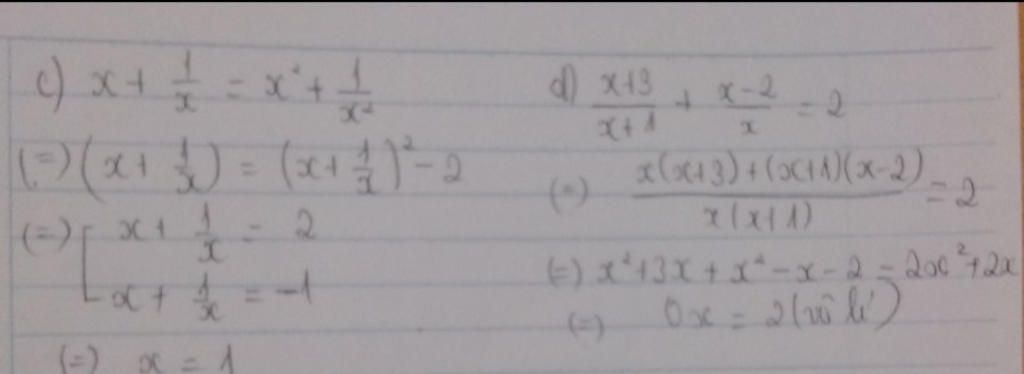 c) x + 1/x = x² + 1/x²
(=) (x + 1/x) = (x + 1/x)² - 2
(=) [ x + 1/x = 2
x + 1/x = -1
(=) x = 1
d) x+3/x+1 + x-2/x = 2
(=) x(x+3)+(x+1)(x-2)/x(x+1) = 2
(=) x²+3x+x²-x-2 = 2x²+2x
(=) 0x = 2 (vô lí)